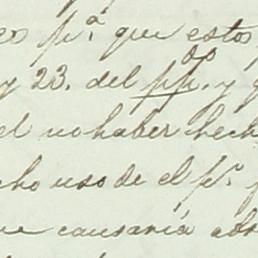 pª que esto
y 23. del ppdo. y
el no haber hech
cho uso de el pr.
ue causaria